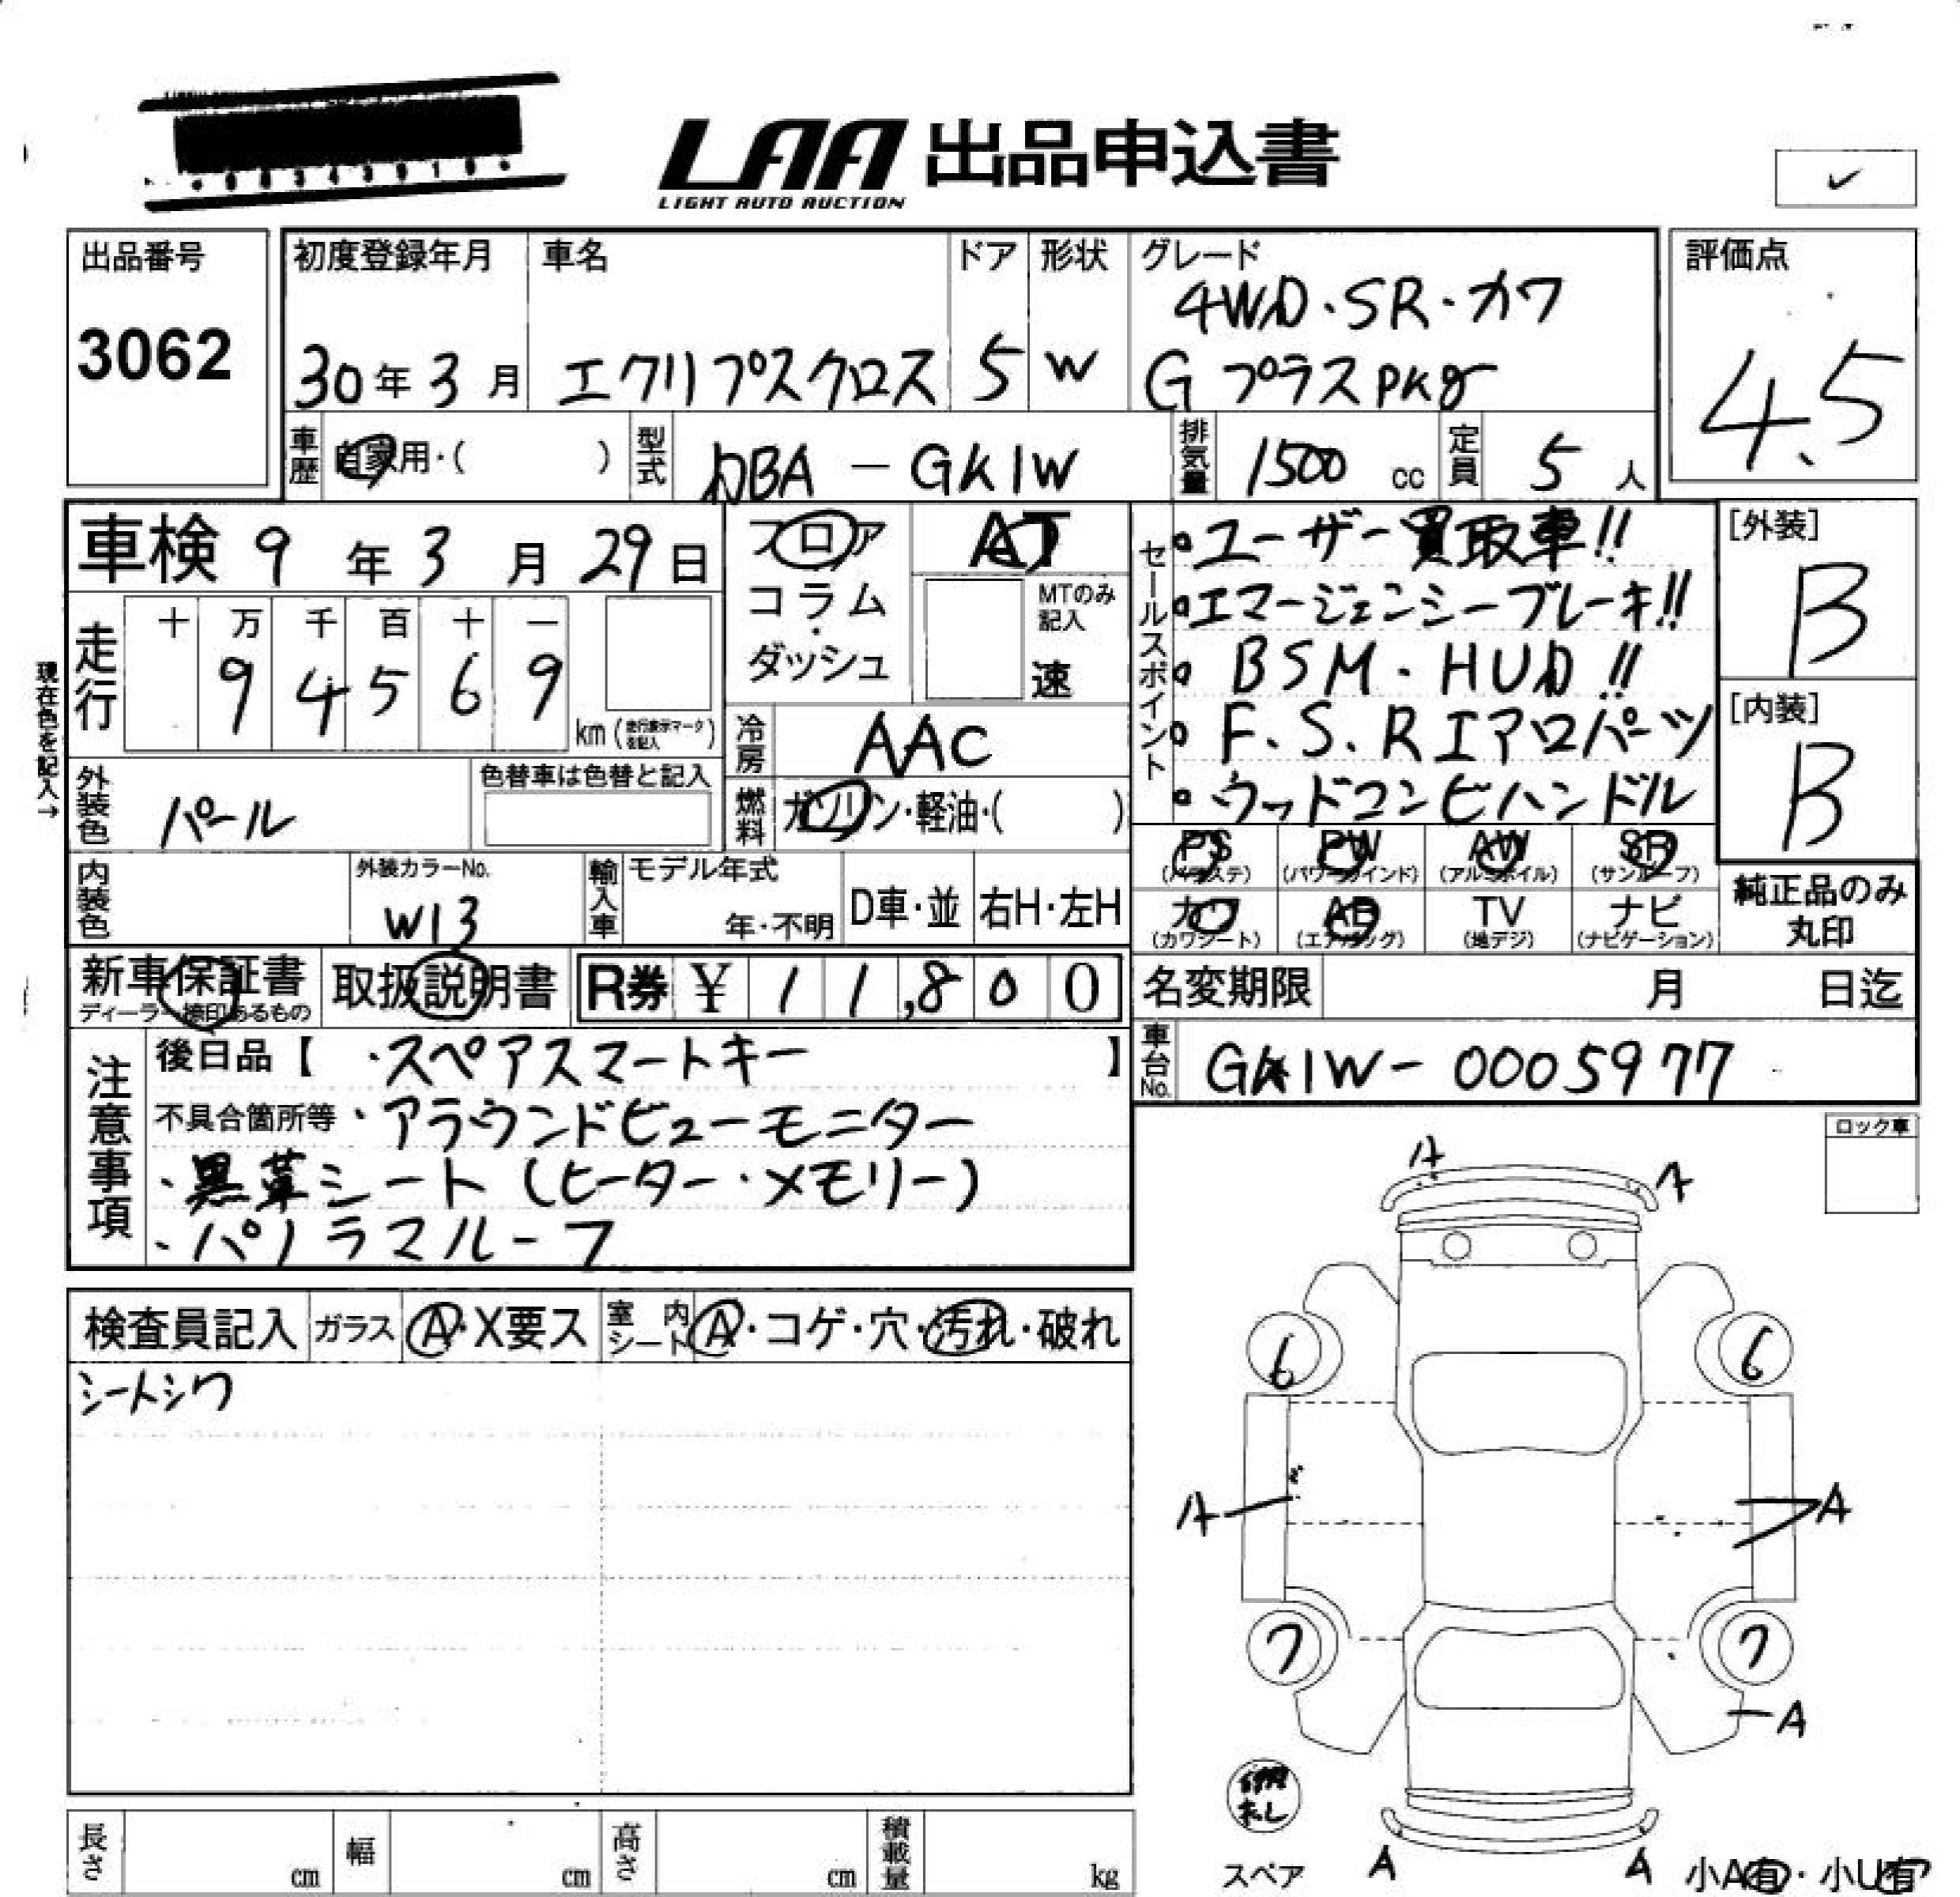 LAA 出品申込書
LIGHT AUTO AUCTION
出品番号
3062
初度登録年月
30年3月
車名
エクリプスクロス
ドア
5
形状
W
グレード
4WD・SR・カワ
Gプラスpkg
評価点
4.5
車歴
自家用・( )
型式
DBA-GK1W
排気量
1500 cc
定員
5人
車検 9年3月29日
フロア
コラム
・
ダッシュ
AT
MTのみ
記入
速
セールスポイント
・ユーザー買取車!!
・エマージェンシーブレーキ!!
・BSM・HUD!!
・F.S.Rエアロパーツ
・ウッドコンビハンドル
[外装]
B
[内装]
B
現在色を記入→
走行
十 万 千 百 十 一
9 4 5 6 9
km(走行表示マークを記入)
冷房
AAC
燃料
ガソリン・軽油・( )
外装色
パール
色替車は色替と記入
内装色
外装カラーNo.
W13
輸入車
モデル年式
年・不明
D車・並
右H・左H
PS
(パワステ)
PW
(パワーウインド)
AW
(アルミホイル)
SR
(サンルーフ)
カワ
(カワシート)
AB
(エアバッグ)
TV
(地デジ)
ナビ
(ナビゲーション)
純正品のみ
丸印
新車保証書
ディーラー捺印あるもの
取扱説明書
R券 ¥ 11,800
名変期限 月 日迄
注意事項
後日品【 ・スペアスマートキー 】
不具合箇所等 ・アラウンドビューモニター
・黒革シート(ヒーター・メモリー)
・パノラマルーフ
車台No.
GK1W-0005977
ロック車
検査員記入
ガラス
A・X要ス
室内シート
A・コゲ・穴・汚れ・破れ
シートシワ
A
A
6
6
A
A
7
7
A
スペア
A
A
小A有・小U有
長さ cm
幅 cm
高さ cm
積載量 kg